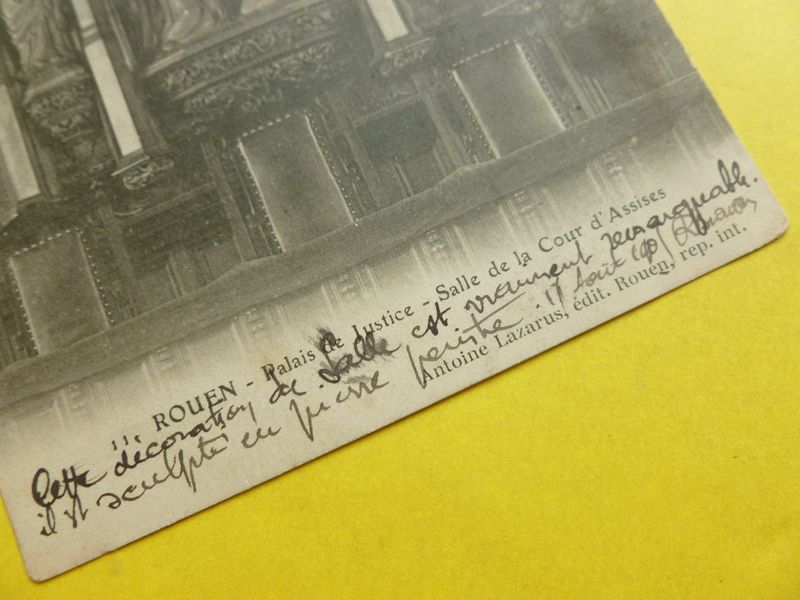 111 ROUEN - Palais de Justice - Salle de la Cour d'Assises
Cette décoration de Salle est vraiment remarquable.
Antoine Lazarus, édit. Rouen, rep. int.
il est sculpté en pierre peinte. 11 Août 190